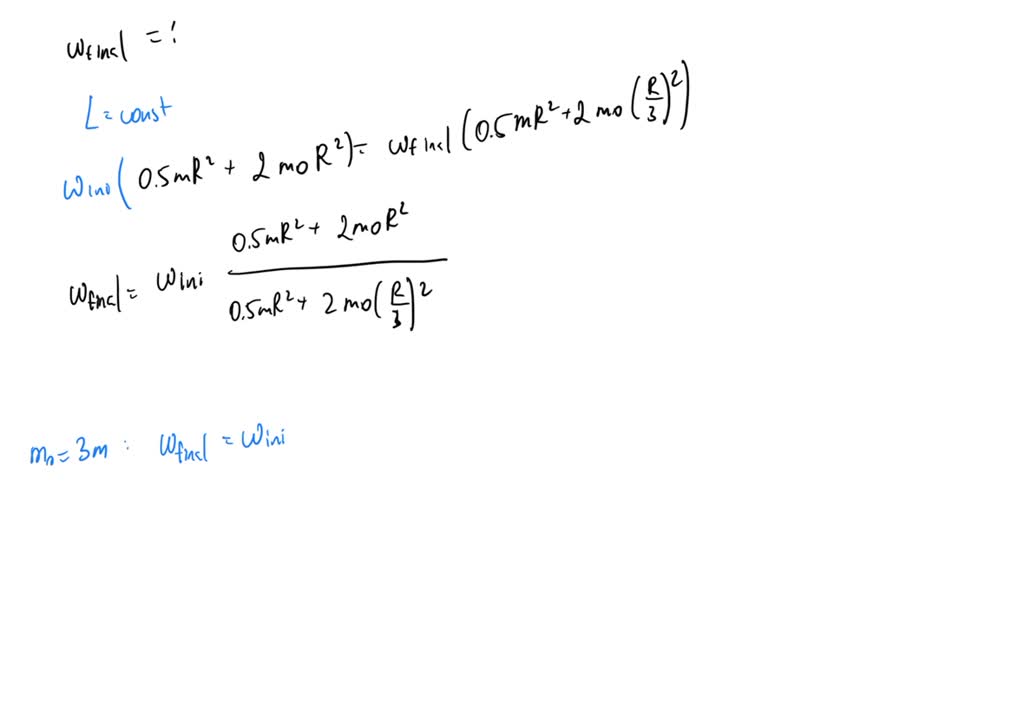 ωfinal = ?
L = const
ωini (0.5mR² + 2 m₀ R²) = ωfinal (0.5mR² + 2 m₀ (R/3)²)
ωfinal = ωini (0.5mR² + 2m₀R²) / (0.5mR² + 2 m₀ (R/3)²)
m₀ = 3m : ωfinal = ωini